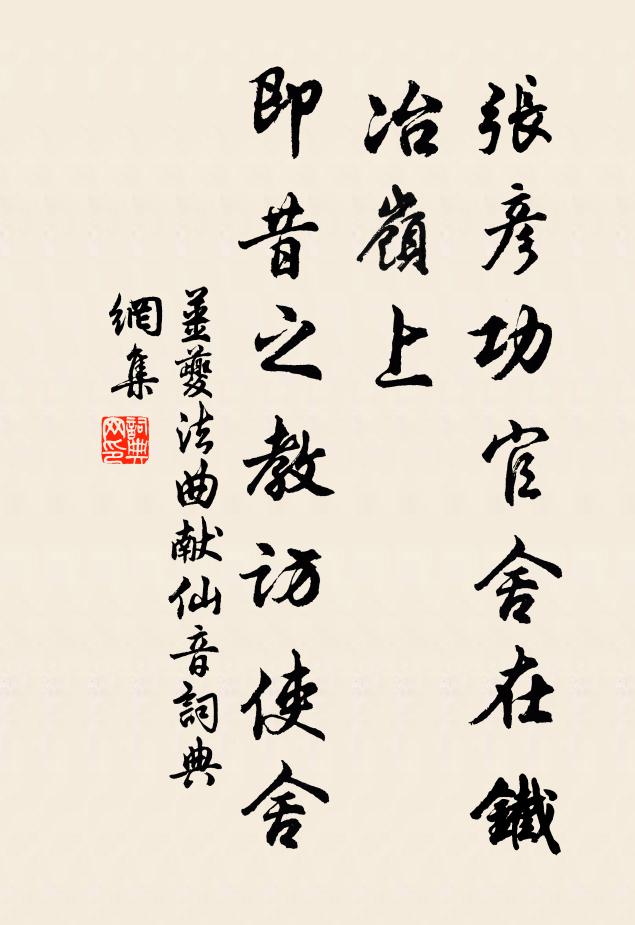 張彦功官舍在鐵
冶嶺上
即昔之教訪使舍
薑夔法曲献仙音詞典
網集
詞典
网印